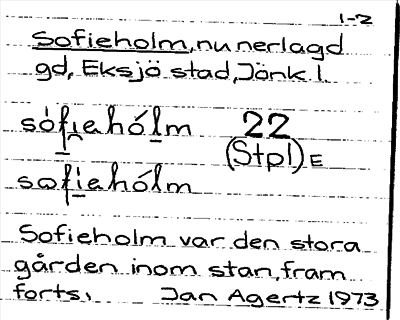 1-2
Sofieholm, nu nerlagd
gd, Eksjö stad, Jönk l.
sófi̯ehólm 22
(Stpl) E
sofiehólm
Sofieholm var den stora
gården inom stan, fram
forts. Jan Agertz 1973